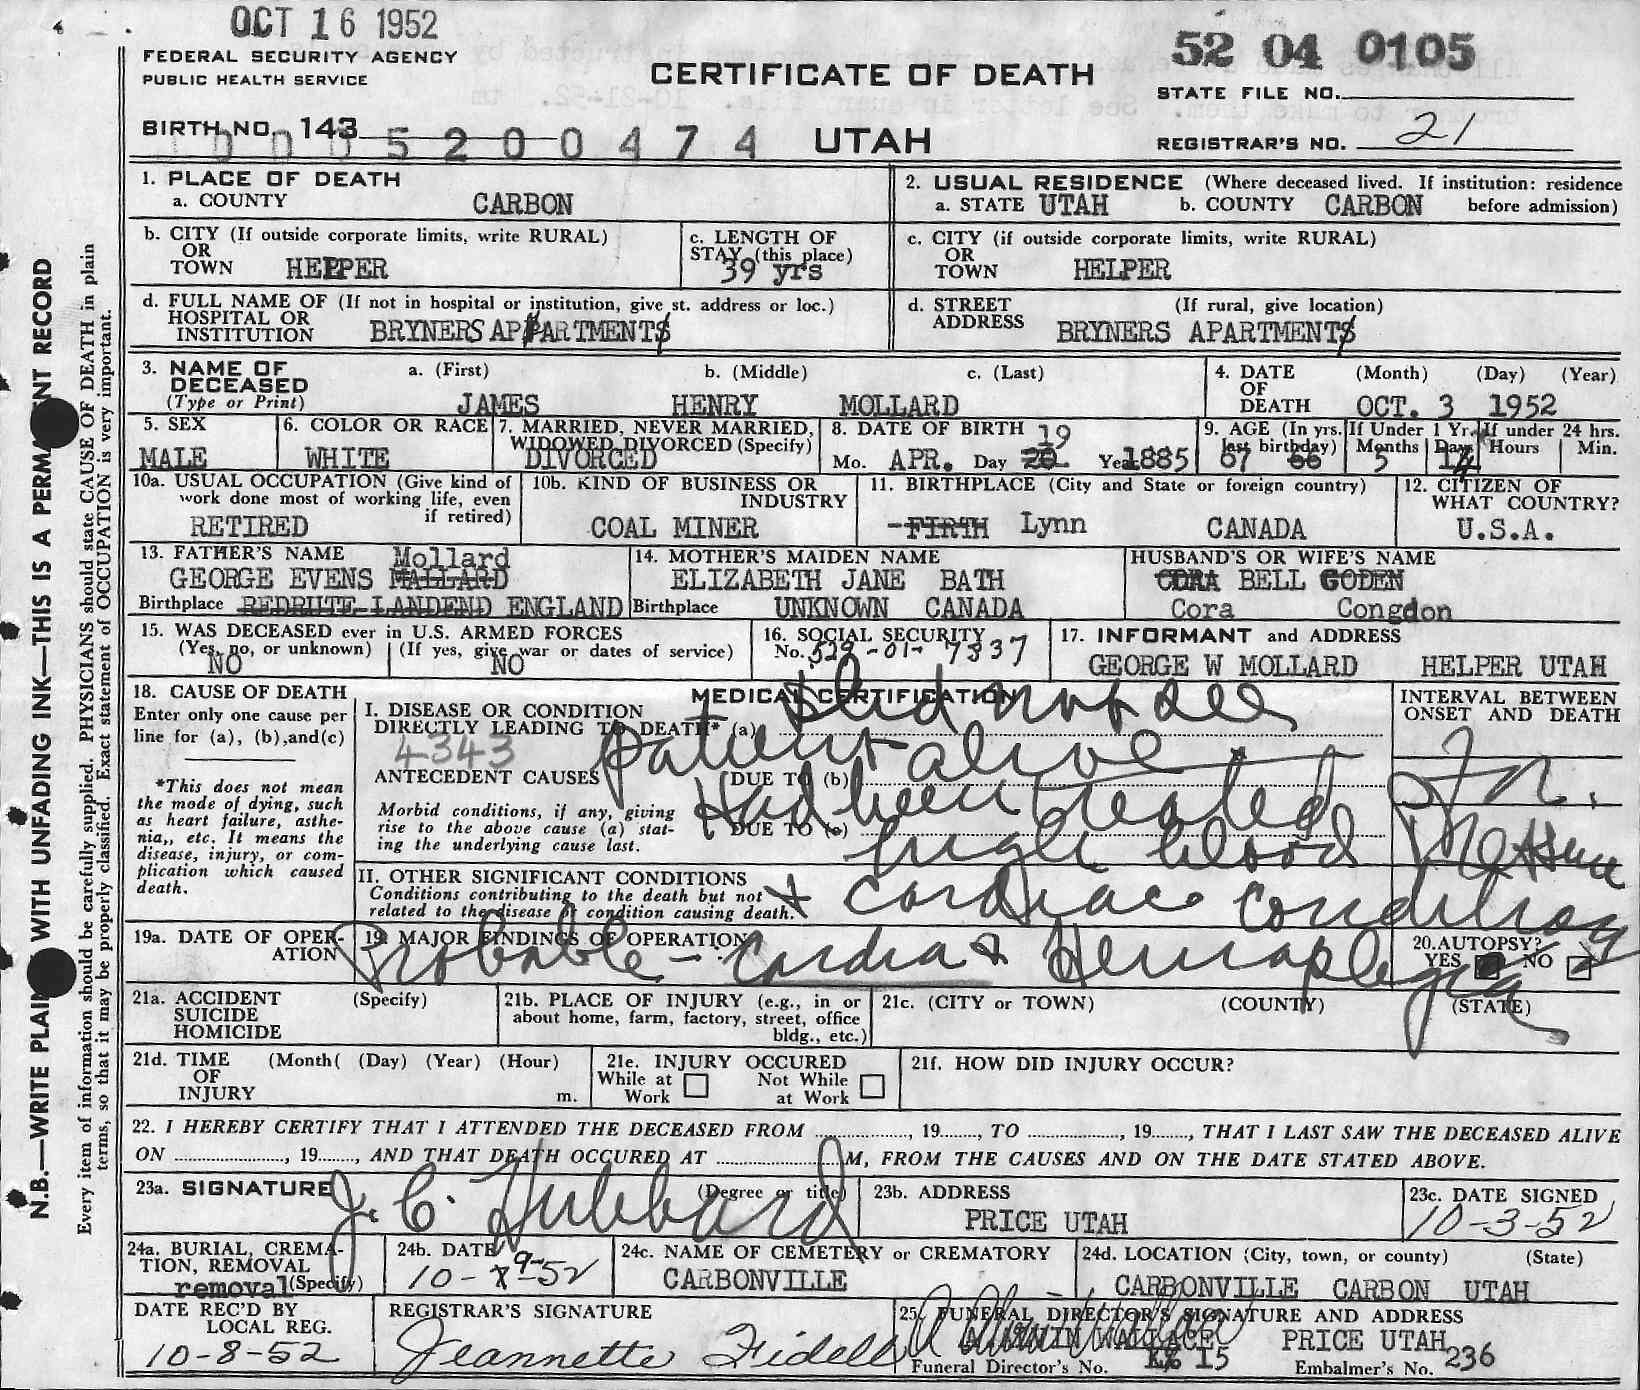 OCT 16 1952
FEDERAL SECURITY AGENCY
PUBLIC HEALTH SERVICE
CERTIFICATE OF DEATH
52 04 0105
STATE FILE NO.
BIRTH NO. 143
0005200474
UTAH
REGISTRAR'S NO. 21
1. PLACE OF DEATH
a. COUNTY CARBON
2. USUAL RESIDENCE (Where deceased lived. If institution: residence before admission)
a. STATE UTAH b. COUNTY CARBON
b. CITY (If outside corporate limits, write RURAL)
OR
TOWN HELPER
c. LENGTH OF
STAY (this place)
39 yrs
c. CITY (if outside corporate limits, write RURAL)
OR
TOWN HELPER
d. FULL NAME OF (If not in hospital or institution, give st. address or loc.)
HOSPITAL OR
INSTITUTION BRYNERS APARTMENTS
d. STREET (If rural, give location)
ADDRESS BRYNERS APARTMENTS
3. NAME OF DECEASED
(Type or Print)
a. (First) b. (Middle) c. (Last)
JAMES HENRY MOLLARD
4. DATE OF DEATH (Month) (Day) (Year)
OCT. 3 1952
5. SEX
MALE
6. COLOR OR RACE
WHITE
7. MARRIED, NEVER MARRIED,
WIDOWED, DIVORCED (Specify)
DIVORCED
8. DATE OF BIRTH 19
Mo. APR. Day 20 Year 1885
9. AGE (In yrs. last birthday) 67 66
If Under 1 Yr. Months 5 Days 14
If under 24 hrs. Hours Min.
10a. USUAL OCCUPATION (Give kind of
work done most of working life, even
if retired)
RETIRED
10b. KIND OF BUSINESS OR
INDUSTRY
COAL MINER
11. BIRTHPLACE (City and State or foreign country)
FIRTH Lynn CANADA
12. CITIZEN OF
WHAT COUNTRY?
U.S.A.
13. FATHER'S NAME Mollard
GEORGE EVENS MALLARD
Birthplace REDRUTE LANDEND ENGLAND
14. MOTHER'S MAIDEN NAME
ELIZABETH JANE BATH
Birthplace UNKNOWN CANADA
HUSBAND'S OR WIFE'S NAME
CORA BELL GODEN
Cora Congdon
15. WAS DECEASED ever in U.S. ARMED FORCES
(Yes, no, or unknown) (If yes, give war or dates of service)
NO NO
16. SOCIAL SECURITY
No. 529-01-7337
17. INFORMANT and ADDRESS
GEORGE W MOLLARD HELPER UTAH
18. CAUSE OF DEATH
Enter only one cause per
line for (a), (b), and (c)
*This does not mean
the mode of dying, such
as heart failure, asthe-
nia,, etc. It means the
disease, injury, or com-
plication which caused
death.
MEDICAL CERTIFICATION
I. DISEASE OR CONDITION
DIRECTLY LEADING TO DEATH* (a)
4343
ANTECEDENT CAUSES
Morbid conditions, if any, giving
rise to the above cause (a) stat-
ing the underlying cause last.
DUE TO (b)
DUE TO (c)
II. OTHER SIGNIFICANT CONDITIONS
Conditions contributing to the death but not
related to the disease or condition causing death.
INTERVAL BETWEEN
ONSET AND DEATH
Did not see
patient alive
Had been treated for
high blood pressure
+ cardiac condition
Probable - Cardia & Hemaplegia
19a. DATE OF OPER-
ATION
19. MAJOR FINDINGS OF OPERATION
20. AUTOPSY?
YES NO
21a. ACCIDENT (Specify)
SUICIDE
HOMICIDE
21b. PLACE OF INJURY (e.g., in or
about home, farm, factory, street, office
bldg., etc.)
21c. (CITY or TOWN) (COUNTY) (STATE)
21d. TIME (Month( (Day) (Year) (Hour)
OF
INJURY m.
21e. INJURY OCCURED
While at Work Not While at Work
21f. HOW DID INJURY OCCUR?
22. I HEREBY CERTIFY THAT I ATTENDED THE DECEASED FROM ............, 19......., TO ............, 19......., THAT I LAST SAW THE DECEASED ALIVE
ON ............, 19......., AND THAT DEATH OCCURED AT ............M, FROM THE CAUSES AND ON THE DATE STATED ABOVE.
23a. SIGNATURE (Degree or title)
J. C. Hubbard
23b. ADDRESS
PRICE UTAH
23c. DATE SIGNED
10-3-52
24a. BURIAL, CREMA-
TION, REMOVAL
removal (Specify)
24b. DATE
10-9-52
24c. NAME OF CEMETERY or CREMATORY
CARBONVILLE
24d. LOCATION (City, town, or county) (State)
CARBONVILLE CARBON UTAH
DATE REC'D BY
LOCAL REG.
10-8-52
REGISTRAR'S SIGNATURE
Jeannette Fidell
25. FUNERAL DIRECTOR'S SIGNATURE AND ADDRESS
WALLACE PRICE UTAH
Funeral Director's No. 15 Embalmer's No. 236
N.B.—WRITE PLAINLY WITH UNFADING INK—THIS IS A PERMANENT RECORD
Every item of information should be carefully supplied. PHYSICIANS should state CAUSE OF DEATH in plain
terms, so that it may be properly classified. Exact statement of OCCUPATION is very important.